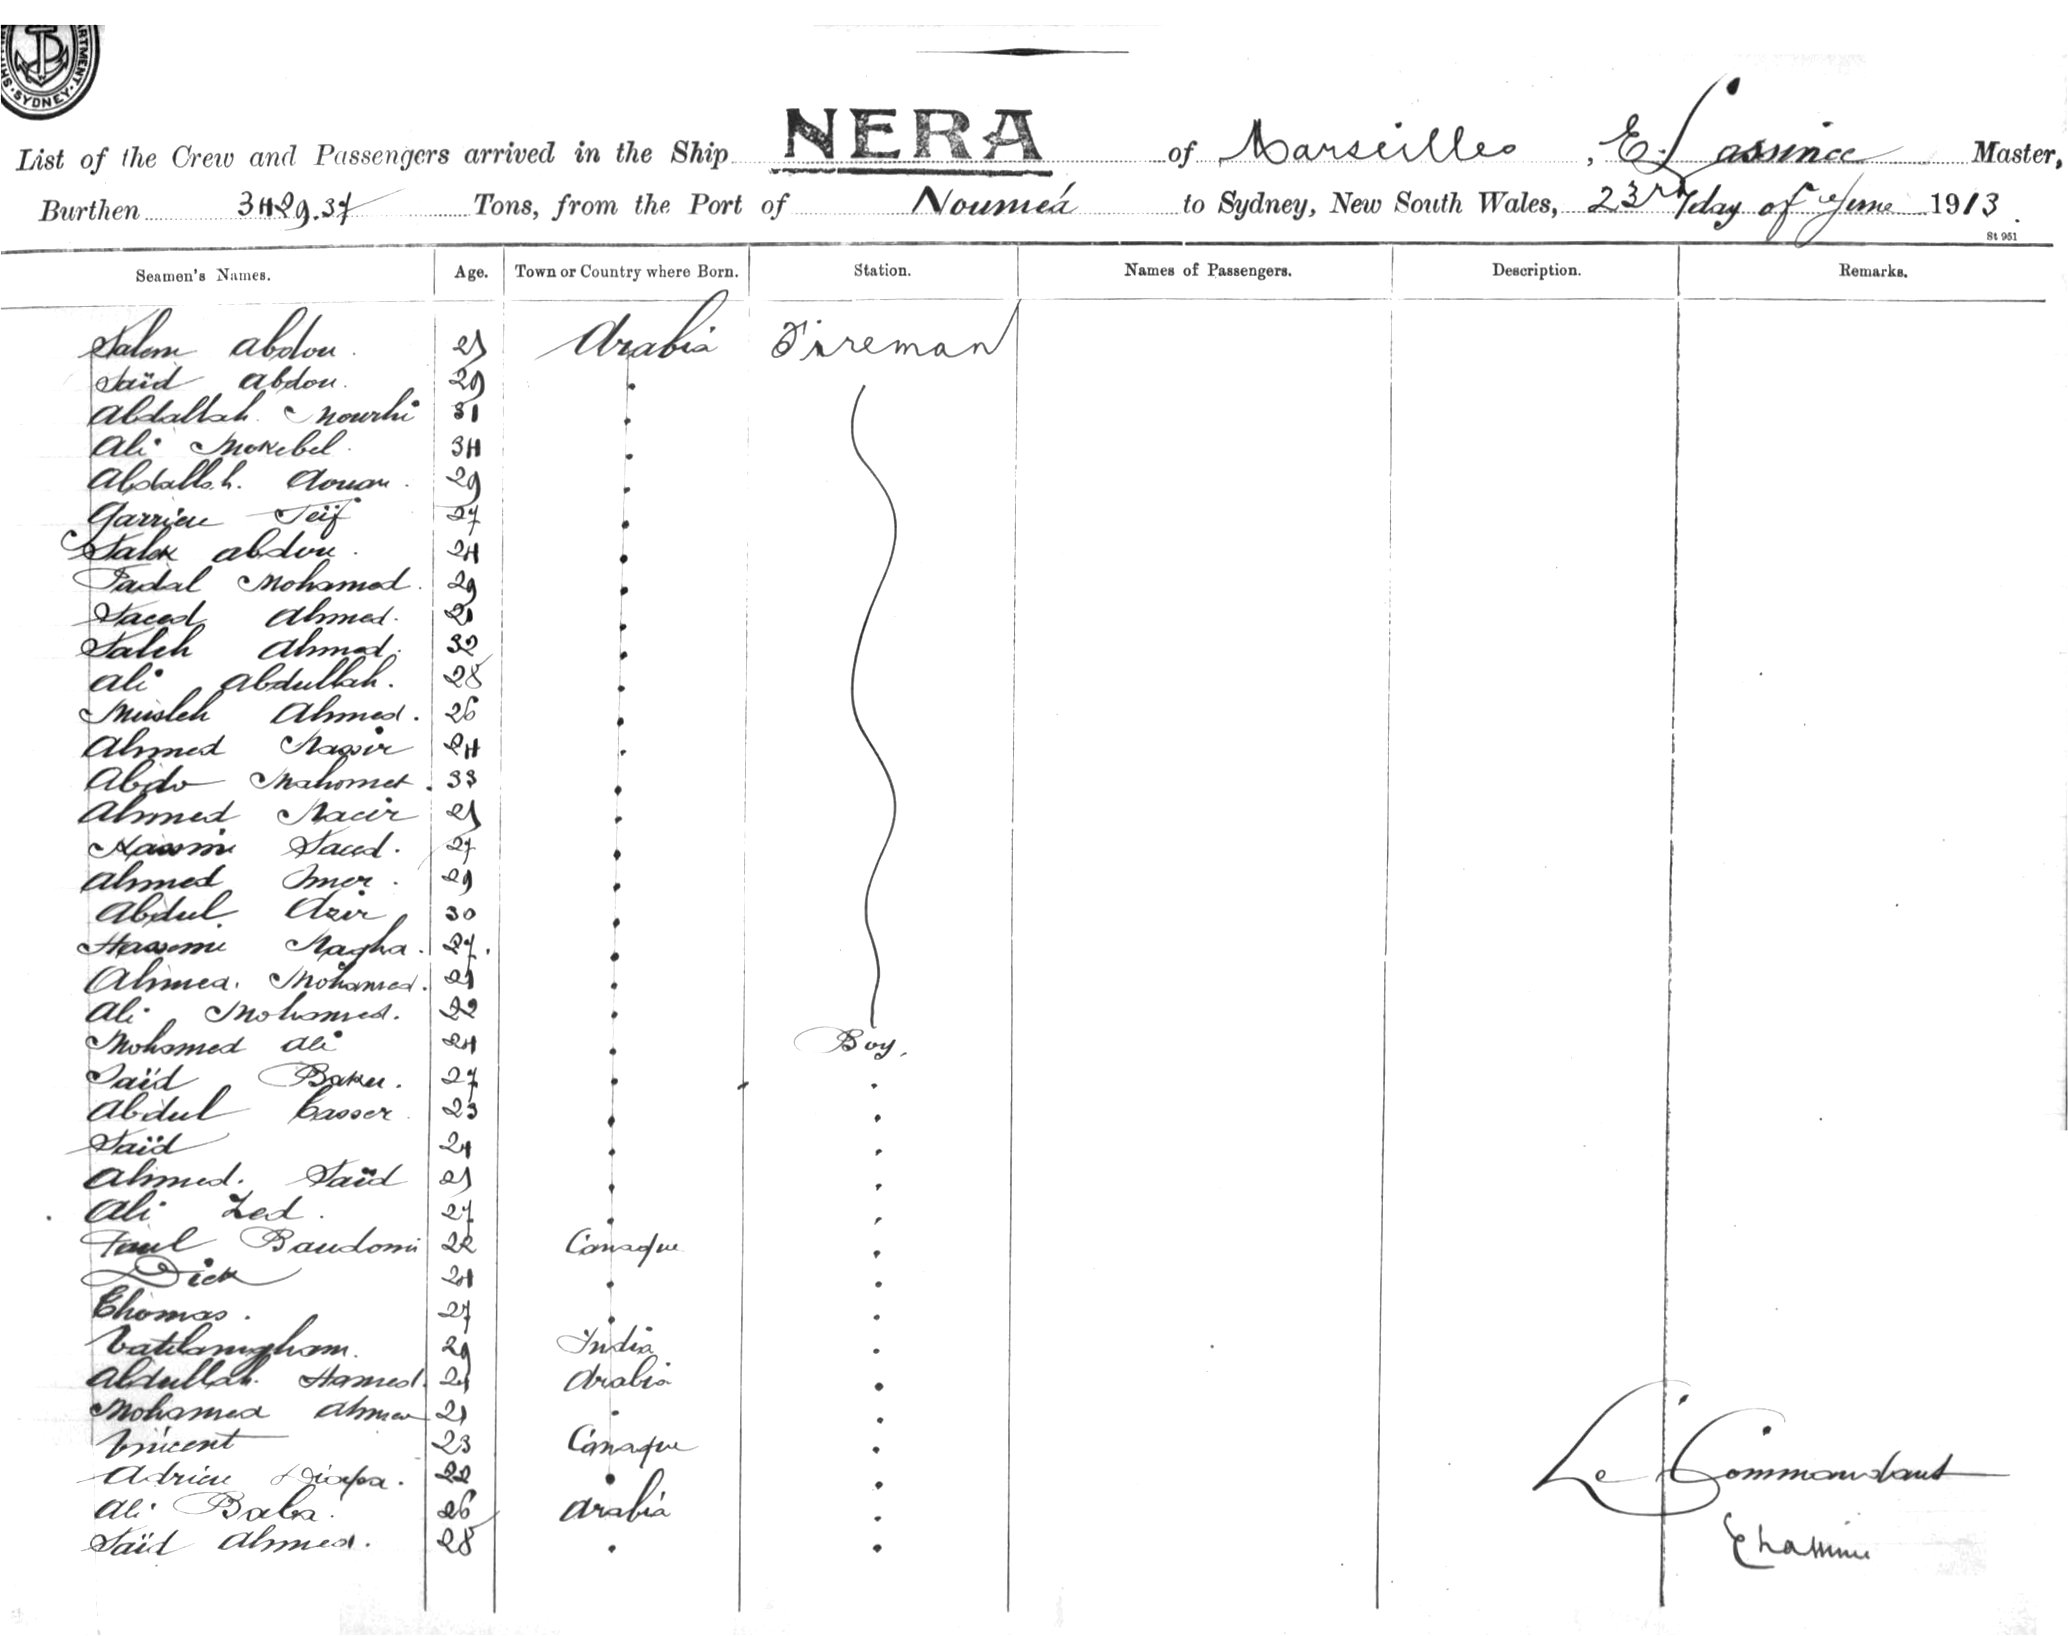 SYDNEY
List of the Crew and Passengers arrived in the Ship NERA of Marseilles, E. Lassince Master,
Burthen 3429.37 Tons, from the Port of Nouméa to Sydney, New South Wales, 23rd day of June 1913.
St 951
Seamen's Names. Age. Town or Country where Born. Station. Names of Passengers. Description. Remarks.
Salem Abdou. 25 Arabia Fireman
Saïd Abdou. 29 "
Abdallah Mourhi 31 "
Ali Mokebel. 34 "
Abdallah. Aouan. 29 "
Garrieu Seïf 27 "
Saleh Abdou. 24 "
Fadal Mohamed. 29 "
Saeed Ahmed. "
Saleh Ahmed. 32 "
Ali Abdullah. 28 "
Musleh Ahmed. 26 "
Ahmed Nassir 24 "
Abdo Mahomet. 33 "
Ahmed Nacir 25 "
Kassim Saeed. 27 "
Ahmed Omer. 29 "
Abdul Azir 30 "
Hassemi Nagha. 27. "
Ahmed. Mohamed. "
Ali Mohamed. 22 "
Mohamed Ali 24 " Boy.
Saïd Baker. 27 " "
Abdul Casser. 23 " "
Saïd 24 " "
Ahmed. Saïd 25 " "
Ali Zed. 27 " "
Paul Baudoni 22 Canaque "
Dick 24 " "
Thomas. 27 " "
29 India "
Abdullah. Hamed. Arabia "
Mohamed Ahmed 21 " "
Vincent 23 Canaque "
Adrien Diapa. 22 " "
Ali Baba. 26 Arabia "
Saïd Ahmed. 28 " "
Le Commandant